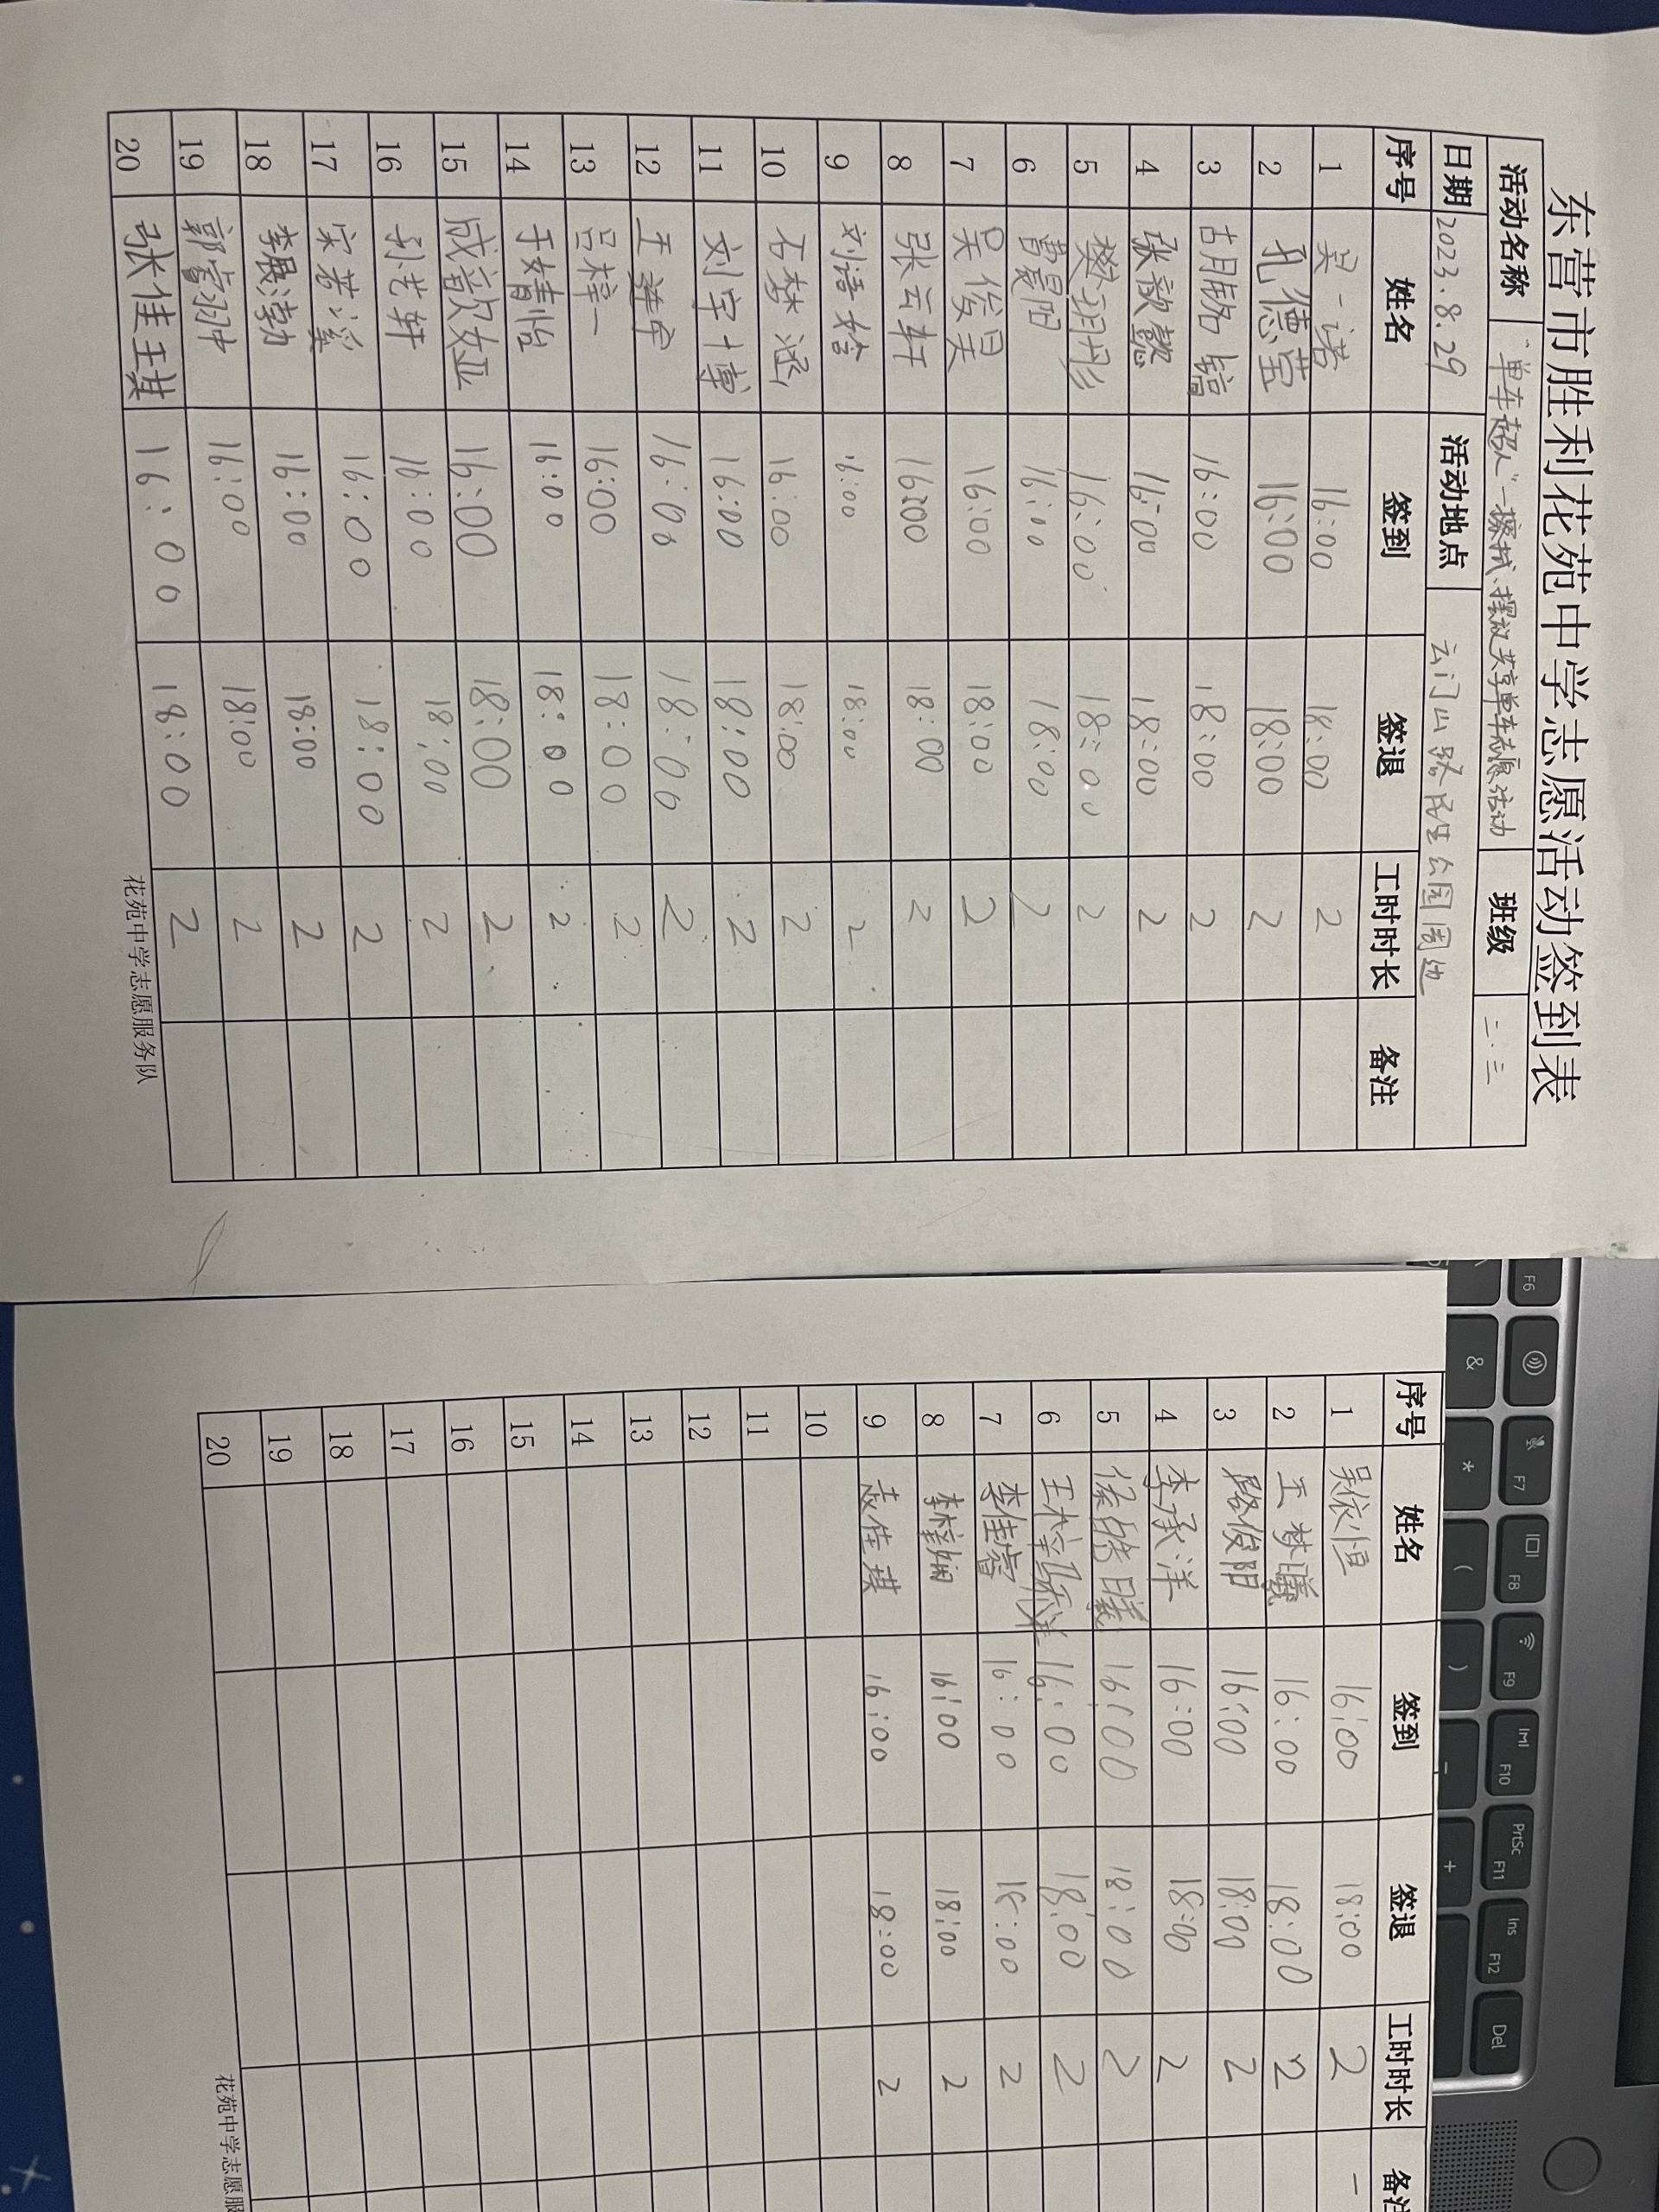 东营市胜利花苑中学志愿活动签到表
活动名称 “单车超人”—擦拭、摆放共享单车志愿活动 班级 二.三
日期 2023.8.29 活动地点 云门山路民生公园周边
序号 姓名 签到 签退 工时时长 备注
1 吴一诺 16:00 18:00 2
2 孔德莹 16:00 18:00 2
3 胡皓镐 16:00 18:00 2
4 张歆懿 16:00 18:00 2
5 樊玥彤 16:00 18:00 2
6 曹景阳 16:00 18:00 2
7 吴俊昊 16:00 18:00 2
8 张云轩 16:00 18:00 2
9 刘语晗 16:00 18:00 2
10 石梦涵 16:00 18:00 2
11 刘宇博 16:00 18:00 2
12 王 16:00 18:00 2
13 吕梓一 16:00 18:00 2
14 于婧怡 16:00 18:00 2
15 成歆娅 16:00 18:00 2
16 孙艺轩 16:00 18:00 2
17 宋若溪 16:00 18:00 2
18 李展渤 16:00 18:00 2
19 郭睿翀 16:00 18:00 2
20 张佳琪 16:00 18:00 2
花苑中学志愿服务队
序号 姓名 签到 签退 工时时长 备注
1 吴依恒 16:00 18:00 2
2 王梦曦 16:00 18:00 2
3 路俊阳 16:00 18:00 2
4 李承洋 16:00 18:00 2
5 皓曦 16:00 18:00 2
6 王梓 16:00 18:00 2
7 李佳睿 16:00 18:00 2
8 李梓娴 16:00 18:00 2
9 袁佳琪 16:00 18:00 2
10
11
12
13
14
15
16
17
18
19
20
花苑中学志愿服
F6
F7
F8
F9
F10
PrtSc F11
Ins F12
Del
&
*
(
)
-
+